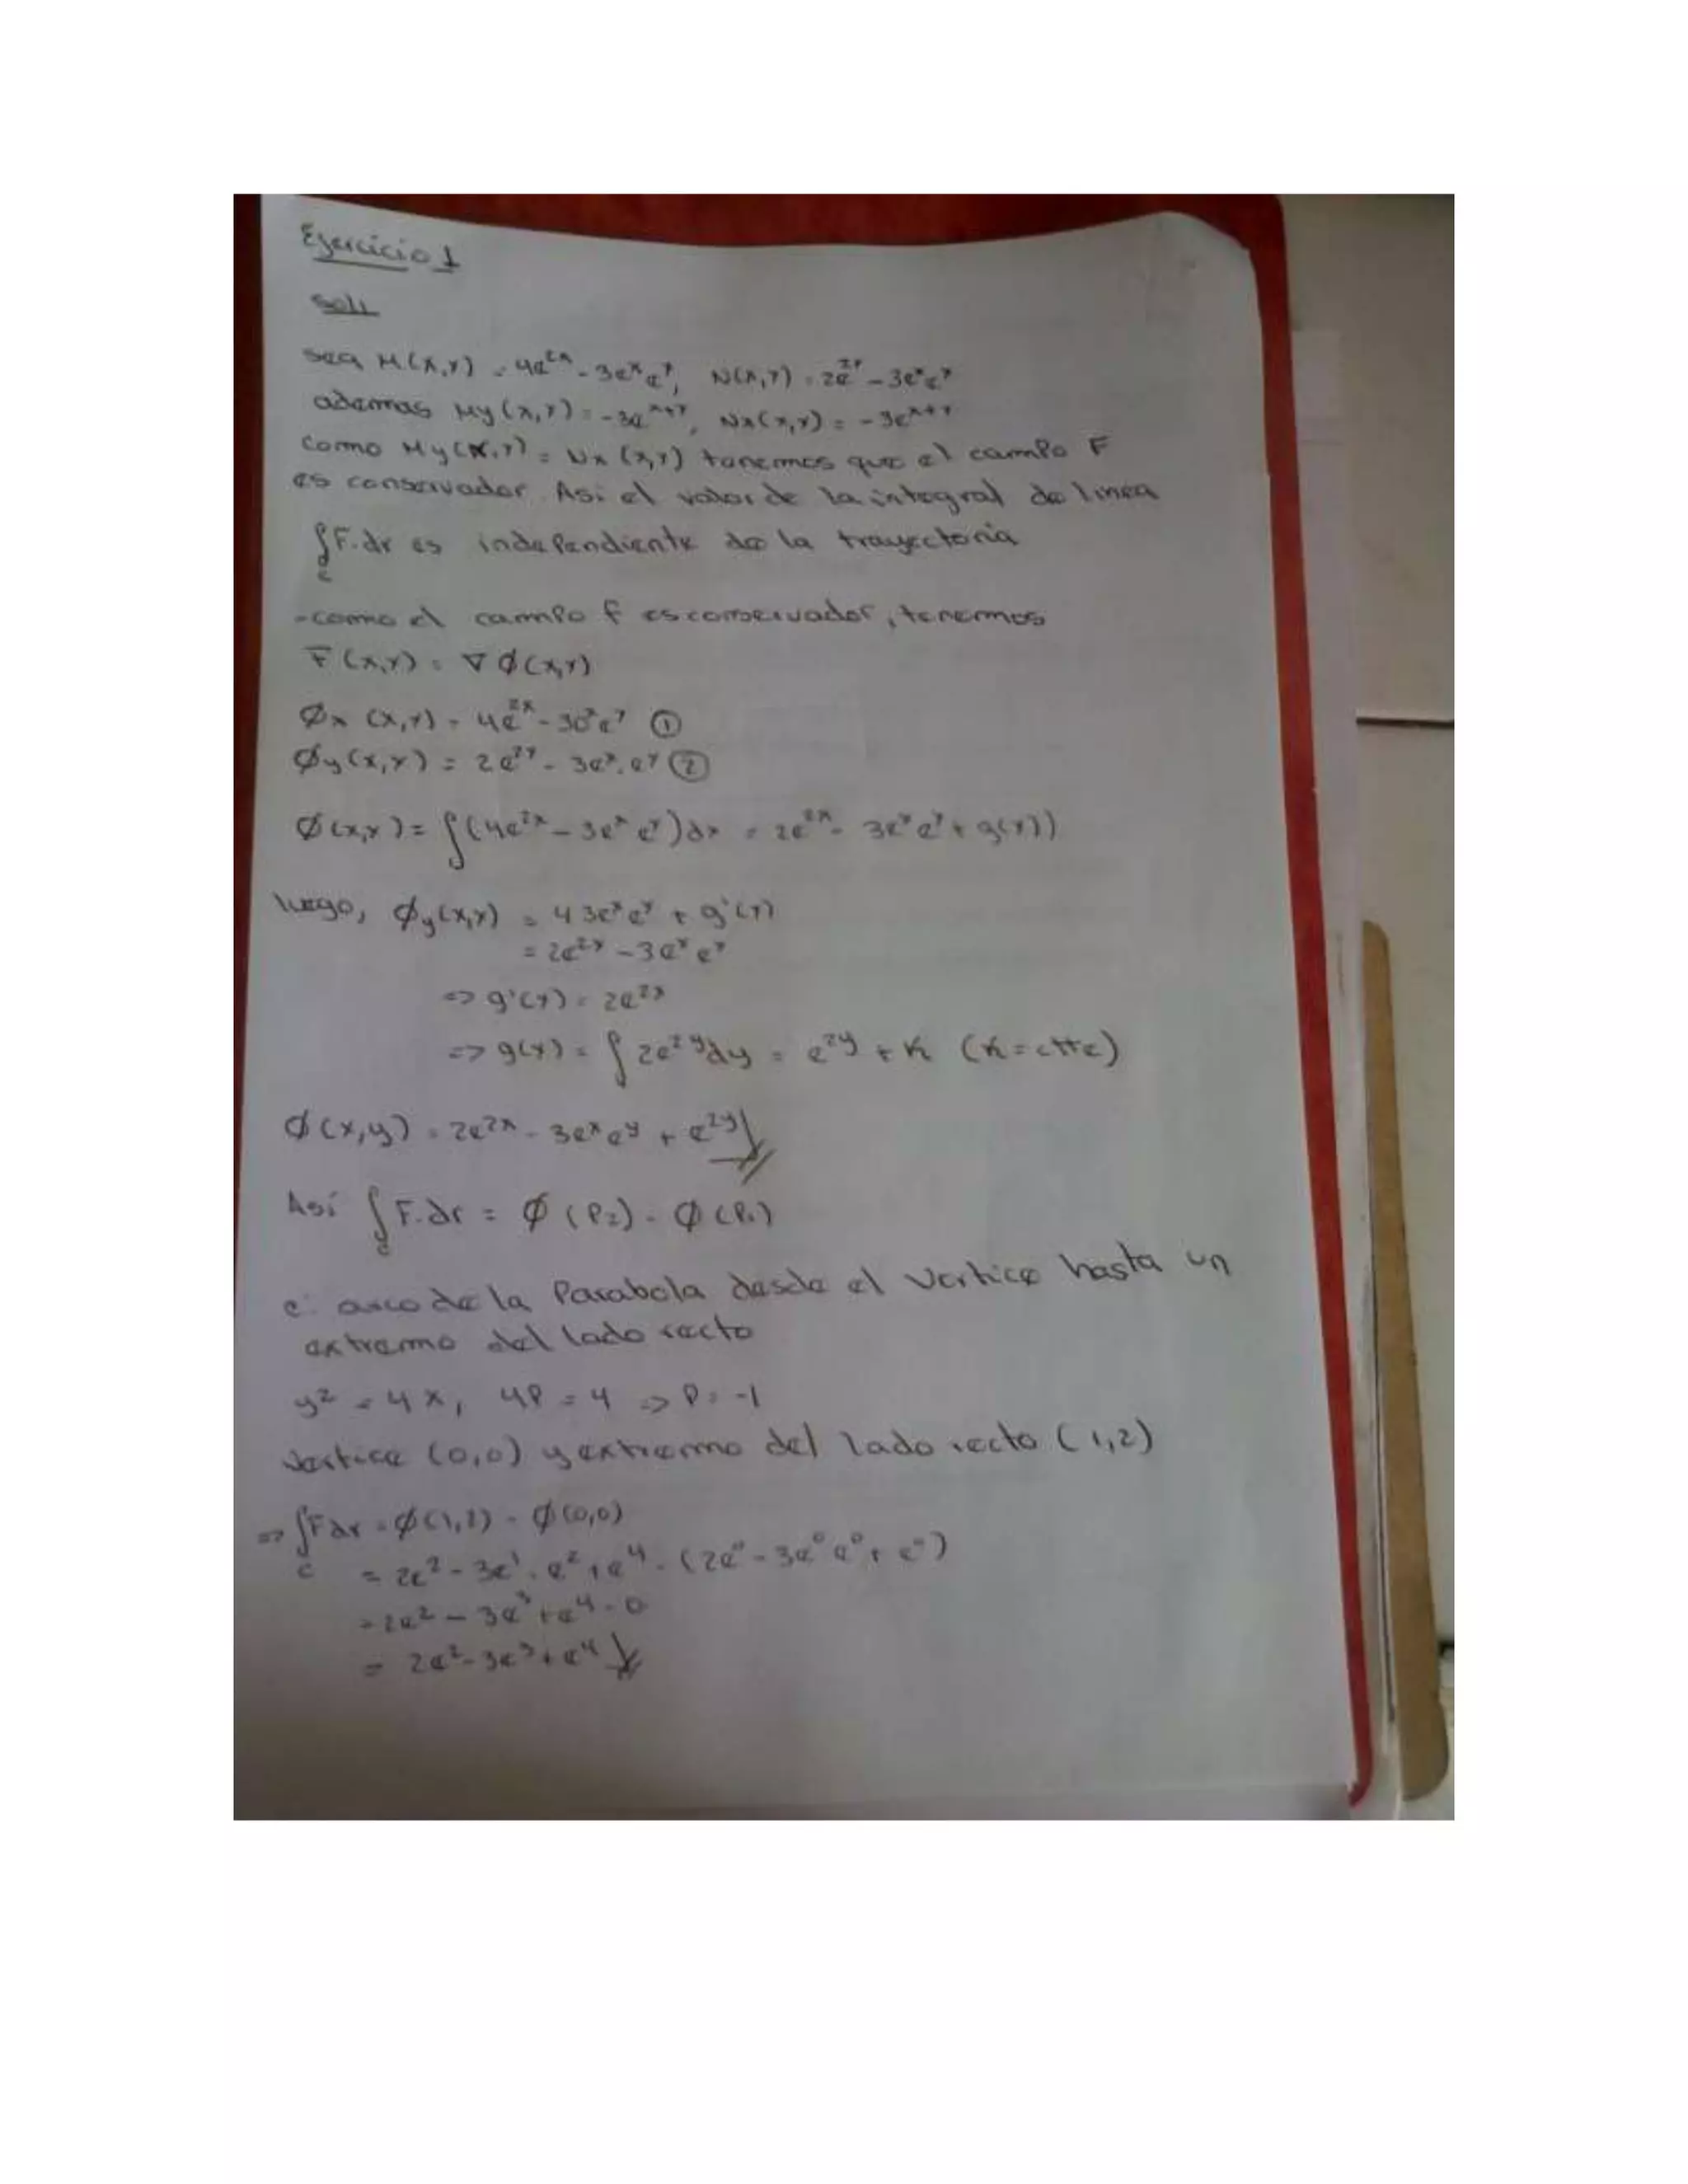 Ejercicio 1
Sol:
Sea M(x,y) = 4e^{2x} - 3e^x e^y, N(x,y) = 2e^{2y} - 3e^x e^y
ademas My(x,y) = -3e^{x+y}, Nx(x,y) = -3e^{x+y}
Como My(x,y) = Nx(x,y) tenemos que el campo F
es conservador. Asi el valor de la integral de linea
∫_c F̄.dr es independiente de la trayectoria
- como el campo f es conservador, tenemos
F̄(x,y) = ∇Ø(x,y)
Øx(x,y) = 4e^{2x} - 3e^x e^y ①
Øy(x,y) = 2e^{2y} - 3e^x.e^y ②
Ø(x,y) = ∫(4e^{2x} - 3e^x e^y)dx = 2e^{2x} - 3e^x e^y + g(y))
luego, Øy(x,y) = 4 3e^x e^y + g'(y)
= 2e^{2y} - 3e^x e^y
=> g'(y) = 2e^{2y}
=> g(y) = ∫2e^{2y}dy = e^{2y} + K (K=ctte)
Ø(x,y) = 2e^{2x} - 3e^x e^y + e^{2y}
Así ∫_c F.dr = Ø(P2) - Ø(P1)
c: arco de la Parabola desde el Vertice hasta un
extremo del lado recto
y² = 4x, 4P = 4 => P = -1
Vertice (0,0) y extremo del lado recto (1,2)
=> ∫_c Fdr = Ø(1,2) - Ø(0,0)
= 2e² - 3e¹.e² + e⁴ - (2e⁰ - 3e⁰e⁰ + e⁰)
= 2e² - 3e³ + e⁴ - 0
= 2e² - 3e³ + e⁴